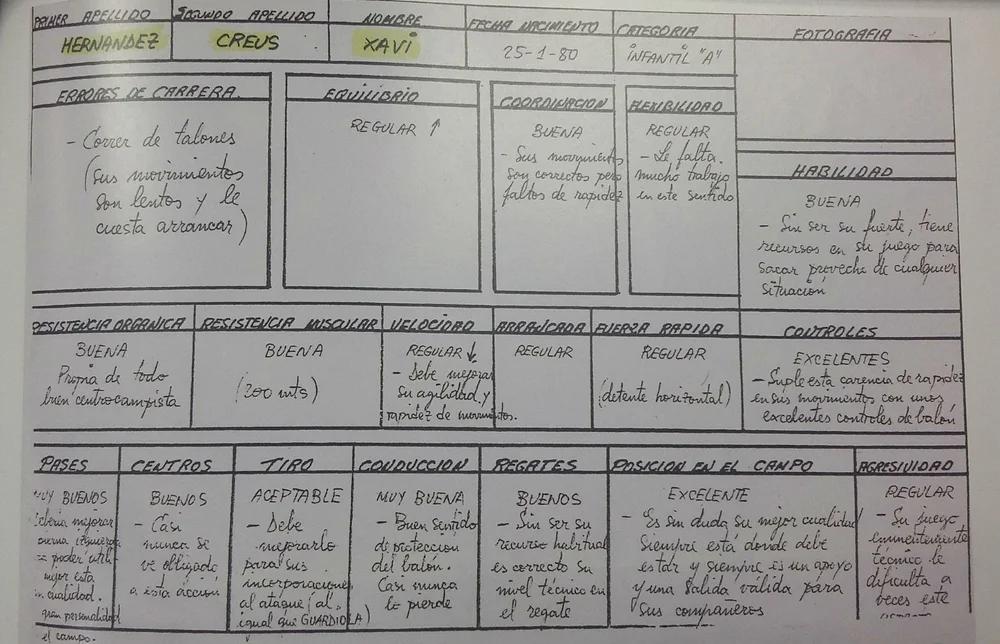 PRIMER APELLIDO
HERNANDEZ
SEGUNDO APELLIDO
CREUS
NOMBRE
XAVI
FECHA NACIMIENTO
25-1-80
CATEGORIA
INFANTIL "A"
FOTOGRAFIA
ERRORES DE CARRERA.
- Correr de talones
(sus movimientos
son lentos y le
cuesta arrancar)
EQUILIBRIO
REGULAR ↑
COORDINACION
BUENA
- Sus movimientos
son correctos pero
faltos de rapidez
FLEXIBILIDAD
REGULAR
- Le falta
mucho trabajo
en este sentido
HABILIDAD
BUENA
- Sin ser su fuerte, tiene
recursos en su juego para
sacar provecho de cualquier
situación
RESISTENCIA ORGANICA
BUENA
Propia de todo
buen centrocampista
RESISTENCIA MUSCULAR
BUENA
(200 mts)
VELOCIDAD
REGULAR ↓
- Debe mejorar
su agilidad y
rapidez de movimientos.
ARRANCADA
REGULAR
FUERZA RAPIDA
REGULAR
(detente horizontal)
CONTROLES
EXCELENTES
- Suple esta carencia de rapidez
en sus movimientos con unos
excelentes controles de balón
PASES
MUY BUENOS
mejorar
poder
mejor esta
cualidad.
gran personalidad
el campo.
CENTROS
BUENOS
- Casi
nunca se
ve obligado
a esta acción
TIRO
ACEPTABLE
- Debe
mejorarlo
para sus
incorporaciones
al ataque (al
igual que GUARDIOLA)
CONDUCCION
MUY BUENA
- Buen sentido
de protección
del balón.
Casi nunca
lo pierde
REGATES
BUENOS
- Sin ser su
recurso habitual
es correcto su
nivel técnico en
el regate
POSICION EN EL CAMPO
EXCELENTE
- Es sin duda su mejor cualidad
Siempre está donde debe
estar y siempre es un apoyo
y una salida válida para
sus compañeros
AGRESIVIDAD
REGULAR
- Su juego
eminentemente
técnico le
dificulta a
veces este